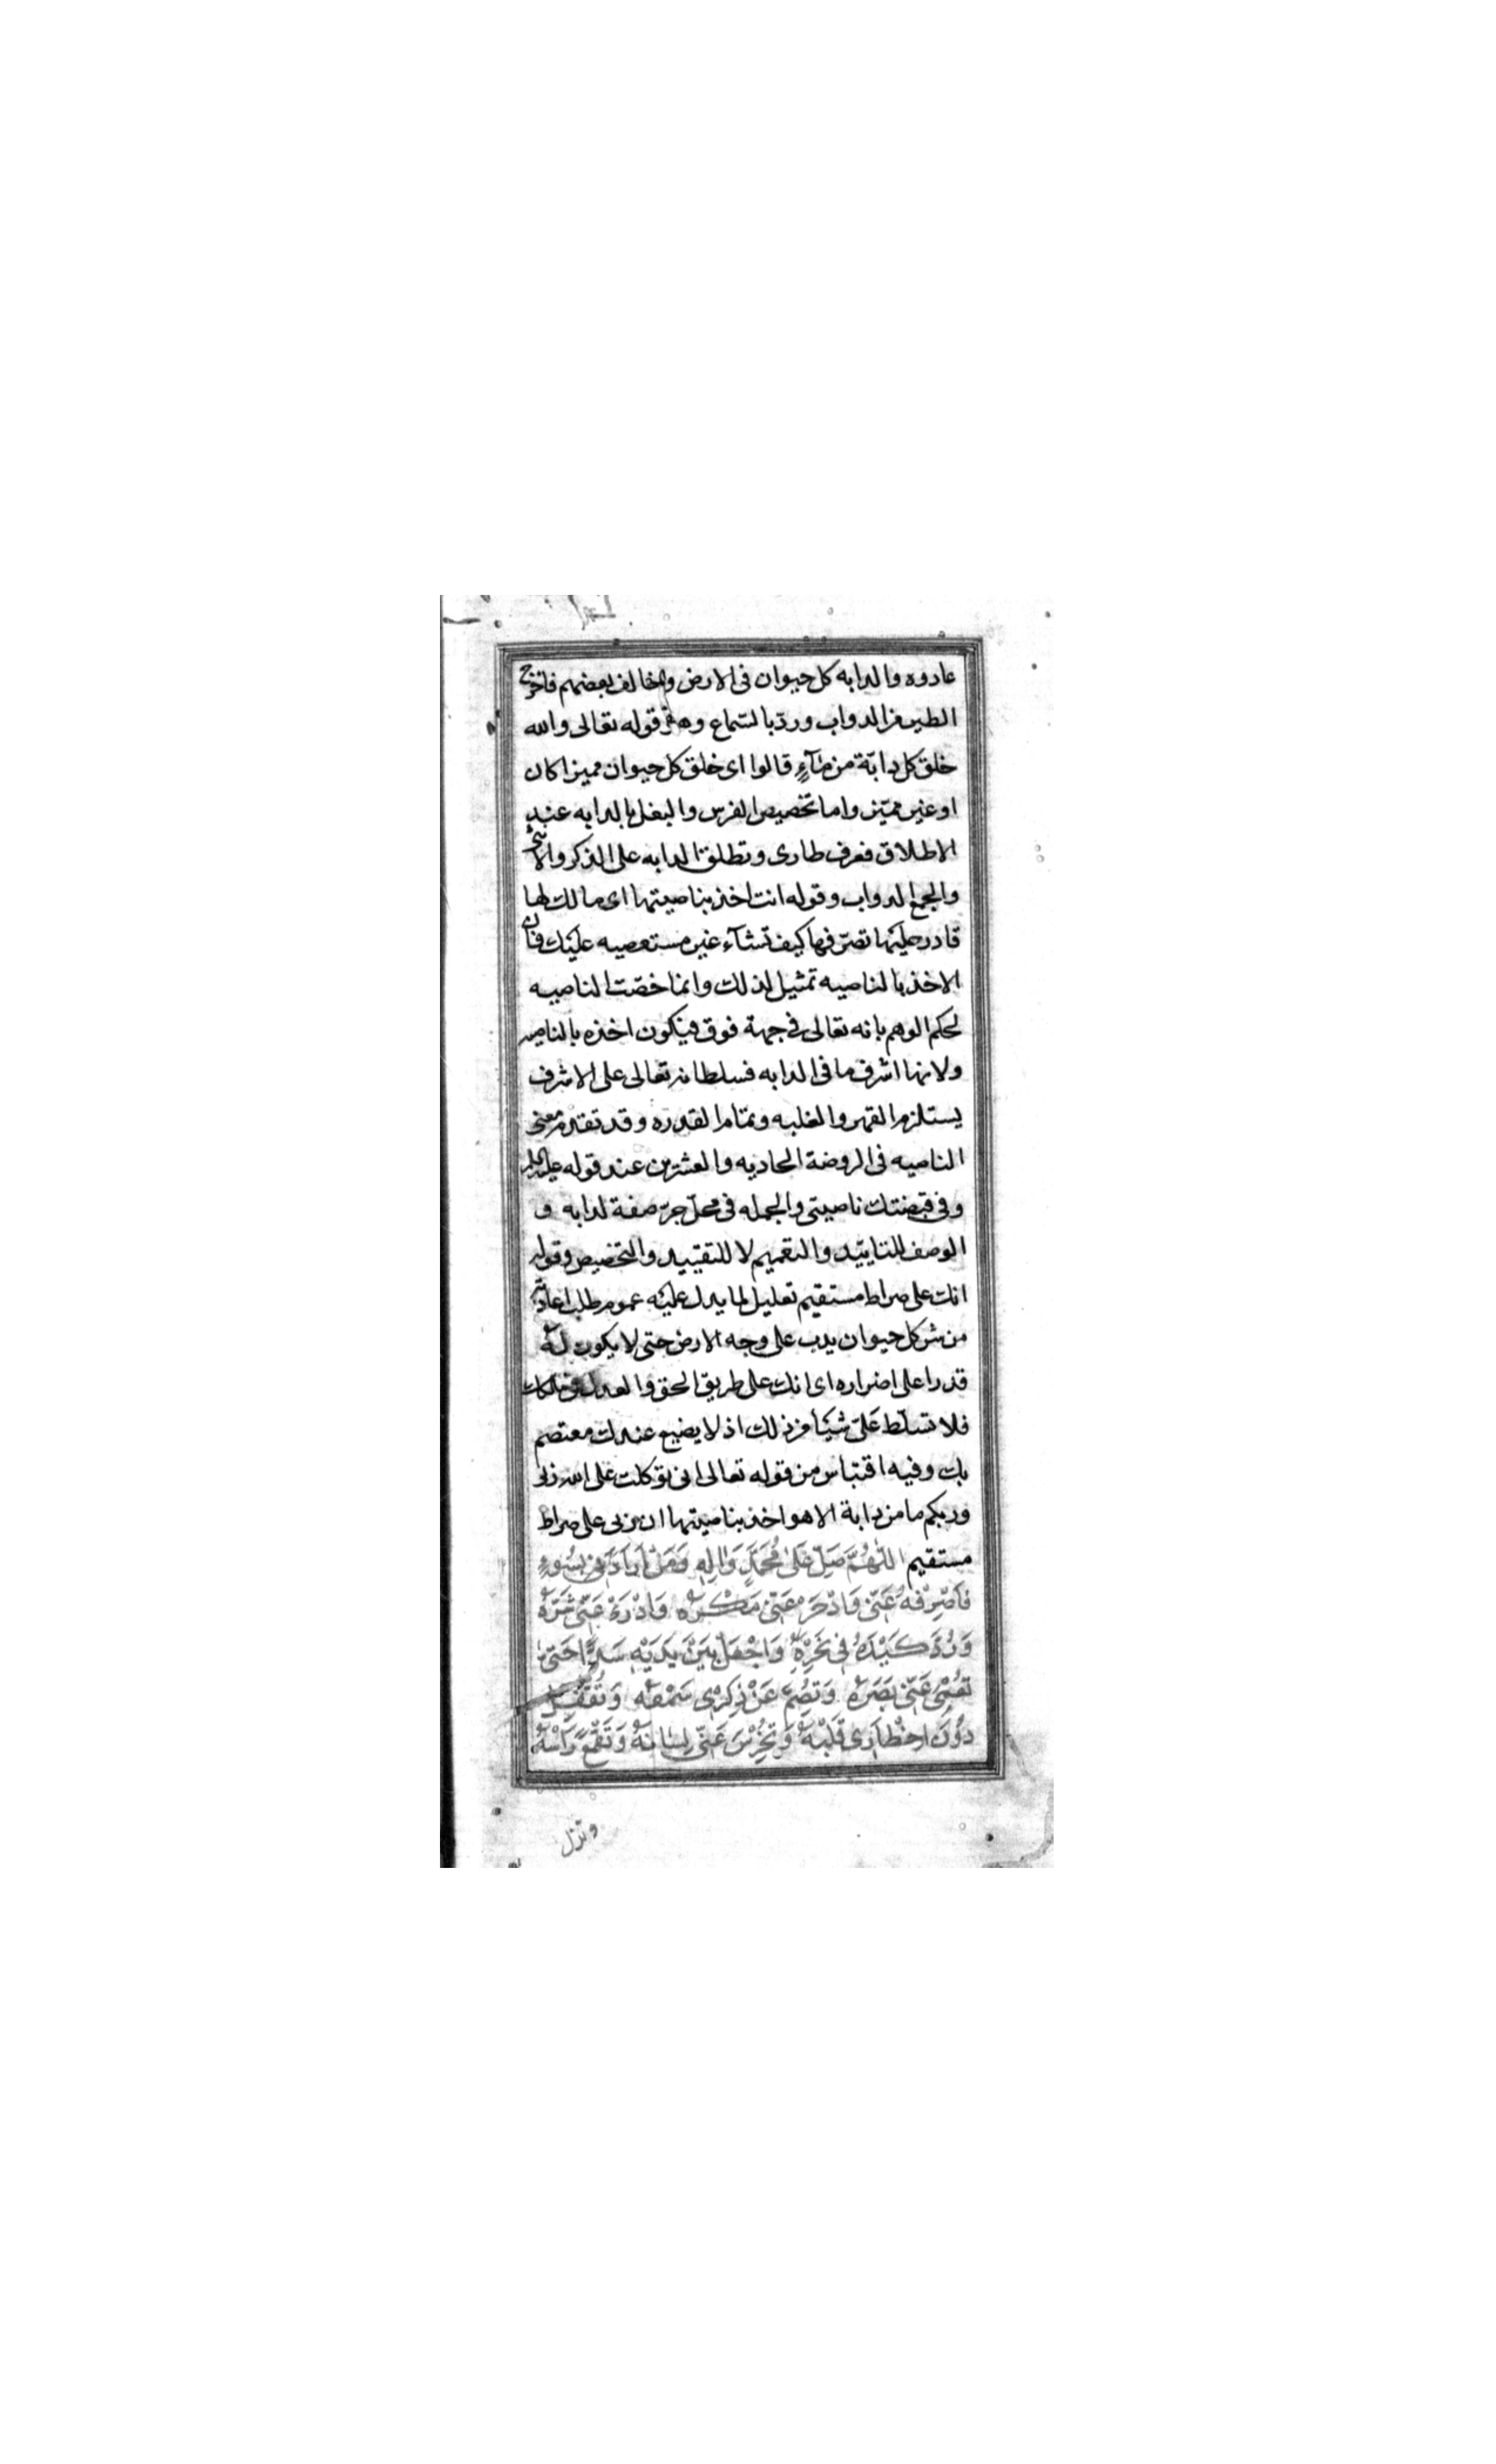 عادوه والدابه كل حيوان في الارض وخالف بعضهم فاخرج
الطير من الدواب ورد بالسماع وهو قوله تعالى والله
خلق كل دابّة من مآءٍ قالوا اى خلق كل حيوان مميزا كان
او غير مميّز واما تخصيص الفرس والبغل بالدابه عند
الاطلاق فعرف طارى وتطلق الدابه على الذكر والانثى
والجمع الدواب وقوله انت اخذ بناصيتها اى مالك لها
قادر عليها تصرّفها كيف تشآء غير مستعصيه عليك فان
الاخذ بالناصيه تمثيل لذلك وانما خصّت الناصيه
لحكم الوهم بانه تعالى فى جهة فوق فيكون اخذه بالناصيه
ولانها اشرف ما فى الدابه فسلطانه تعالى على الاشرف
يستلزم القهر والغلبه وتمام القدره وقد تقدم معنى
الناصيه فى الروضة الحاديه والعشرين عند قوله عليه السلم
وفى قبضتك ناصيتى والجمله فى محلّ جرّ صفة لدابه و
الوصف للتاييد والتعميم لا للتقييد والتخصيص وقوله
انك على صراط مستقيم تعليل لما يدل عليه عموم طلب اعاذته
من شر كل حيوان يدب على وجه الارض حتى لا يكون له
قدرا على اضراره اى انك على طريق الحق والعدل فى ملكك
فلا تسلّط علىّ شيئا من ذلك اذ لا يضيع عندك معتصم
بك وفيه اقتباس من قوله تعالى انى توكلت على الله ربى
وربكم ما من دابة الا هو اخذ بناصيتها ان ربى على صراط
مستقيم اللّٰهُمَّ صَلِّ عَلىٰ مُحَمَّدٍ وَاٰلِهِ وَمَنْ اَرَادَنِى بِسُوءٍ
فَاصْرِفْهُ عَنّى وَادْحَرْ عَنّى مَكْرَهُ وَادْرَءْ عَنّى شَرَّهُ
وَرُدَّ كَيْدَهُ فِى نَحْرِهِ وَاجْعَلْ بَيْنَ يَدَيْهِ سَدًّا حَتىٰ
تُعْمِىَ عَنّى بَصَرَهُ وَتُصِمَّ عَنْ ذِكْرِى سَمْعَهُ وَتُقْفِلَ
دُونَ اِخْطَارِى قَلْبَهُ وَتُخْرِسَ عَنّى لِسَانَهُ وَتَقْمَعَ رَاْسَهُ
وتذل